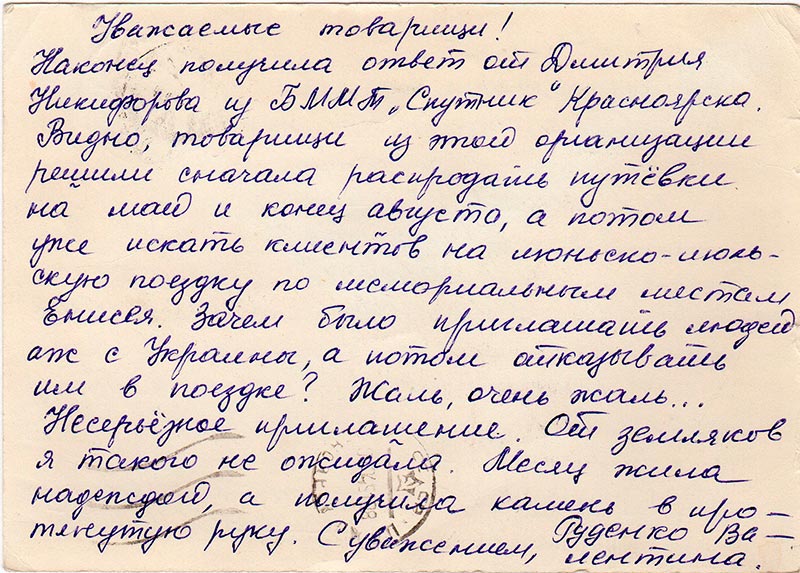 Уважаемые товарищи!
Наконец получила ответ от Дмитрия
Никифорова из БММТ „Спутник“ Красноярска.
Видно, товарищи из этой организации
решили сначала распродать путёвки
на май и конец августа, а потом
уже искать клиентов на июньско-июль-
скую поездку по мемориальным местам
Енисея. Зачем было приглашать людей
аж с Украины, а потом отказывать
им в поездке? Жаль, очень жаль...
Несерьёзное приглашение. От земляков
я такого не ожидала. Месяц жила
надеждой, а получила камень в про-
тянутую руку. С уважением, Руденко Ва-
лентина.